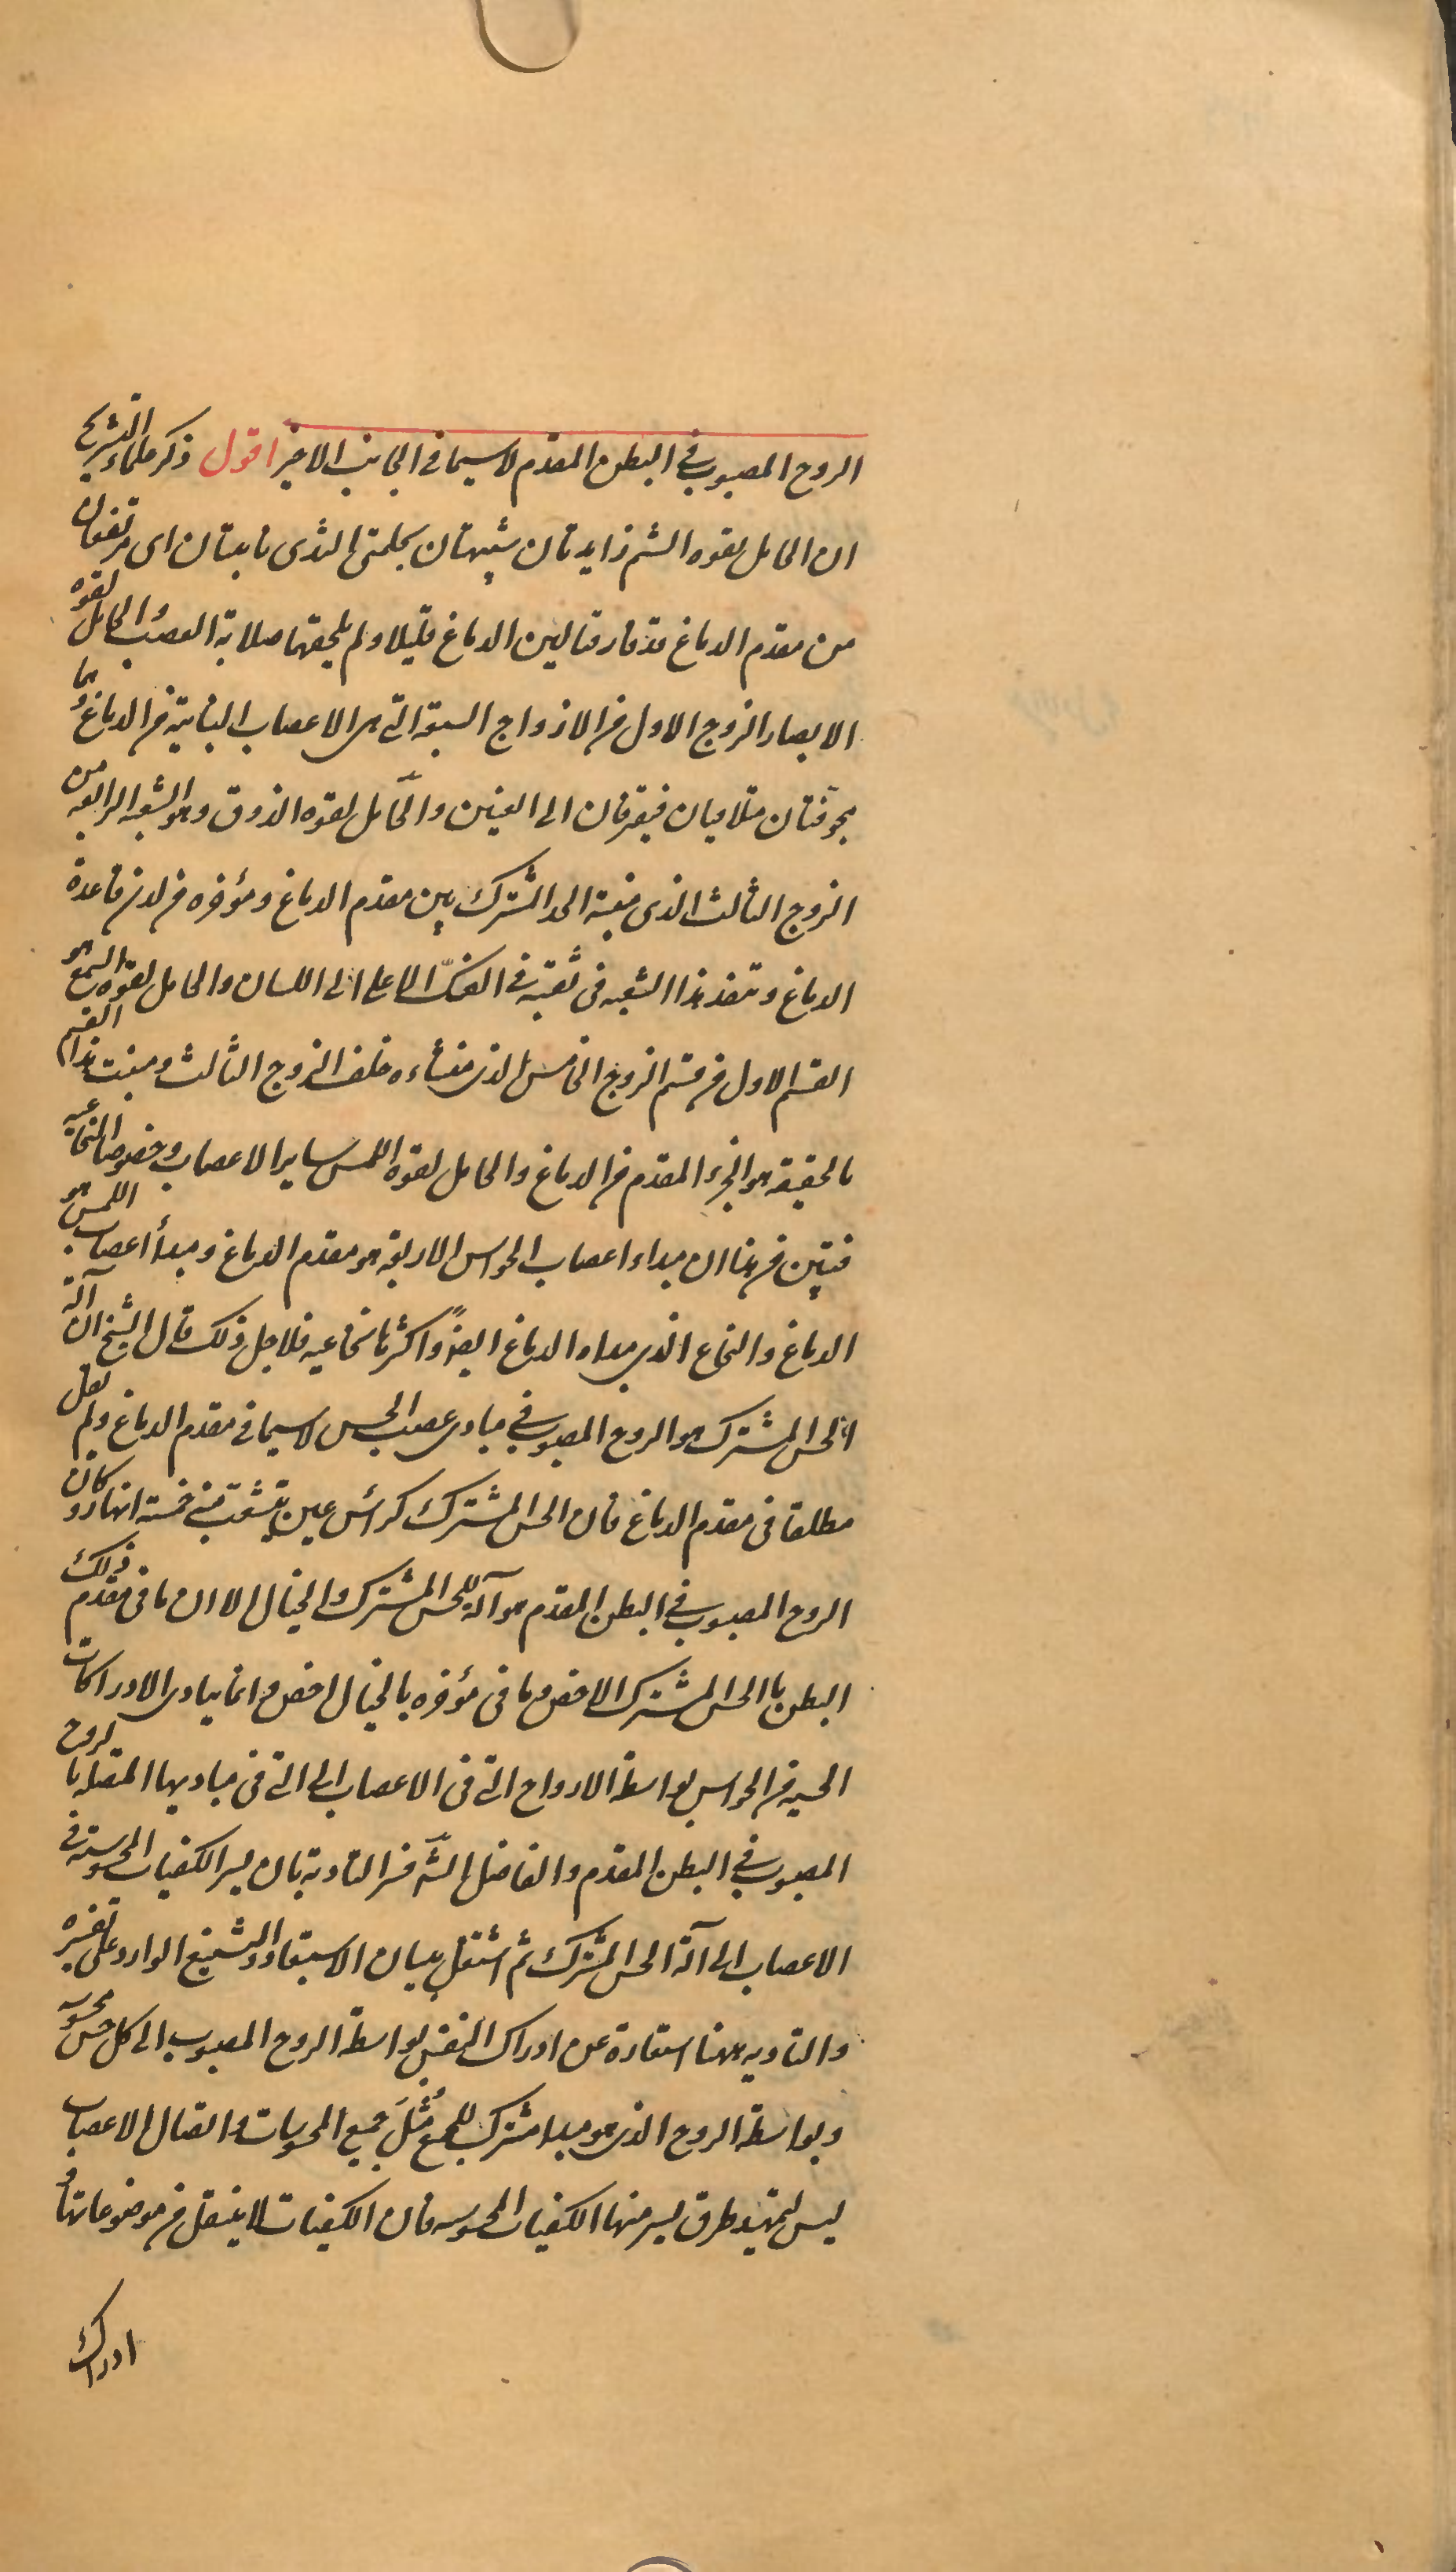 الروح المصبوب فى البطن المقدم لاسيما فى الجانب الاخير اقول ذكر علماء التشريح
ان الحامل لقوه الشم زايدتان شبيهتان بحلمتى الثدى ناتيتان اى مرتفعتان
من مقدم الدماغ قد فارقتا لين الدماغ قليلا ولم يلحقهما صلابة العصب والحامل لقوة
الابصار الزوج الاول من الازواج السبعة التى هى الاعصاب النابتة من الدماغ وهما
مجوفتان متلاقيان فيفرقان الى العينين والحامل لقوه الذوق وهو الشعبه الرابعه من
الزوج الثالث الذى منبته الحد المشترك بين مقدم الدماغ ومؤخره من لدن قاعدة
الدماغ وتنفذ هذا الشعبه فى ثقبة فى الفك الاعلى الى اللسان والحامل لقوه السمع هو
القسم الاول من قسم الزوج الخامس الذى منشاءه خلف الزوج الثالث ومنبت هذا القسم
بالحقيقه هو الجزء المقدم من الدماغ والحامل لقوه اللمس ساير الاعصاب وخصوصا النخاعيه
فتبين من هذا ان مبداء اعصاب الحواس الاربعة هو مقدم الدماغ ومبدأ اعصاب اللمس هو
الدماغ والنخاع الذى مبداه الدماغ ايضاً واكثرها نخاعيه فلاجل ذلك قال الشيخ ان آلة
الحس المشترك هو الروح المصبوب فى مبادى عصب الحس لاسيما فى مقدم الدماغ ولم يقل
مطلقا فى مقدم الدماغ فان الحس المشترك كراس عين يتشعب منه خمسة انهار و كان
الروح المصبوب فى البطن المقدم هو آلة للحس المشترك والخيال الا ان ما فى مقدم ذلك
البطن بالحس المشترك الاخص وما فى مؤخره بالخيال اخص و انما يتادى الادراكات
الحسيه من الحواس بواسطة الارواح التى فى الاعصاب الى التى فى مباديها المتصله بالروح
المصبوب فى البطن المقدم والفاضل الش فسر التادية بان يسر الكيفيات المحسوسة فى
الاعصاب الى آلة الحس المشترك ثم اشتغل ببيان الاستبعاد والتشنيع الوارد على تفسيره
والتاديه ههنا استعارة عن ادراك النفس بواسطة الروح المصبوب الى كل حس محسوسه
وبواسطة الروح الذى هو مبدا مشترك للجميع مُثُلَ جميع المحسوسات واتصال الاعصاب
ليس لتمهيد طرق يسر منها الكيفيات المحسوسه فان الكيفيات لا ينتقل من موضوعاتها و
ادراك